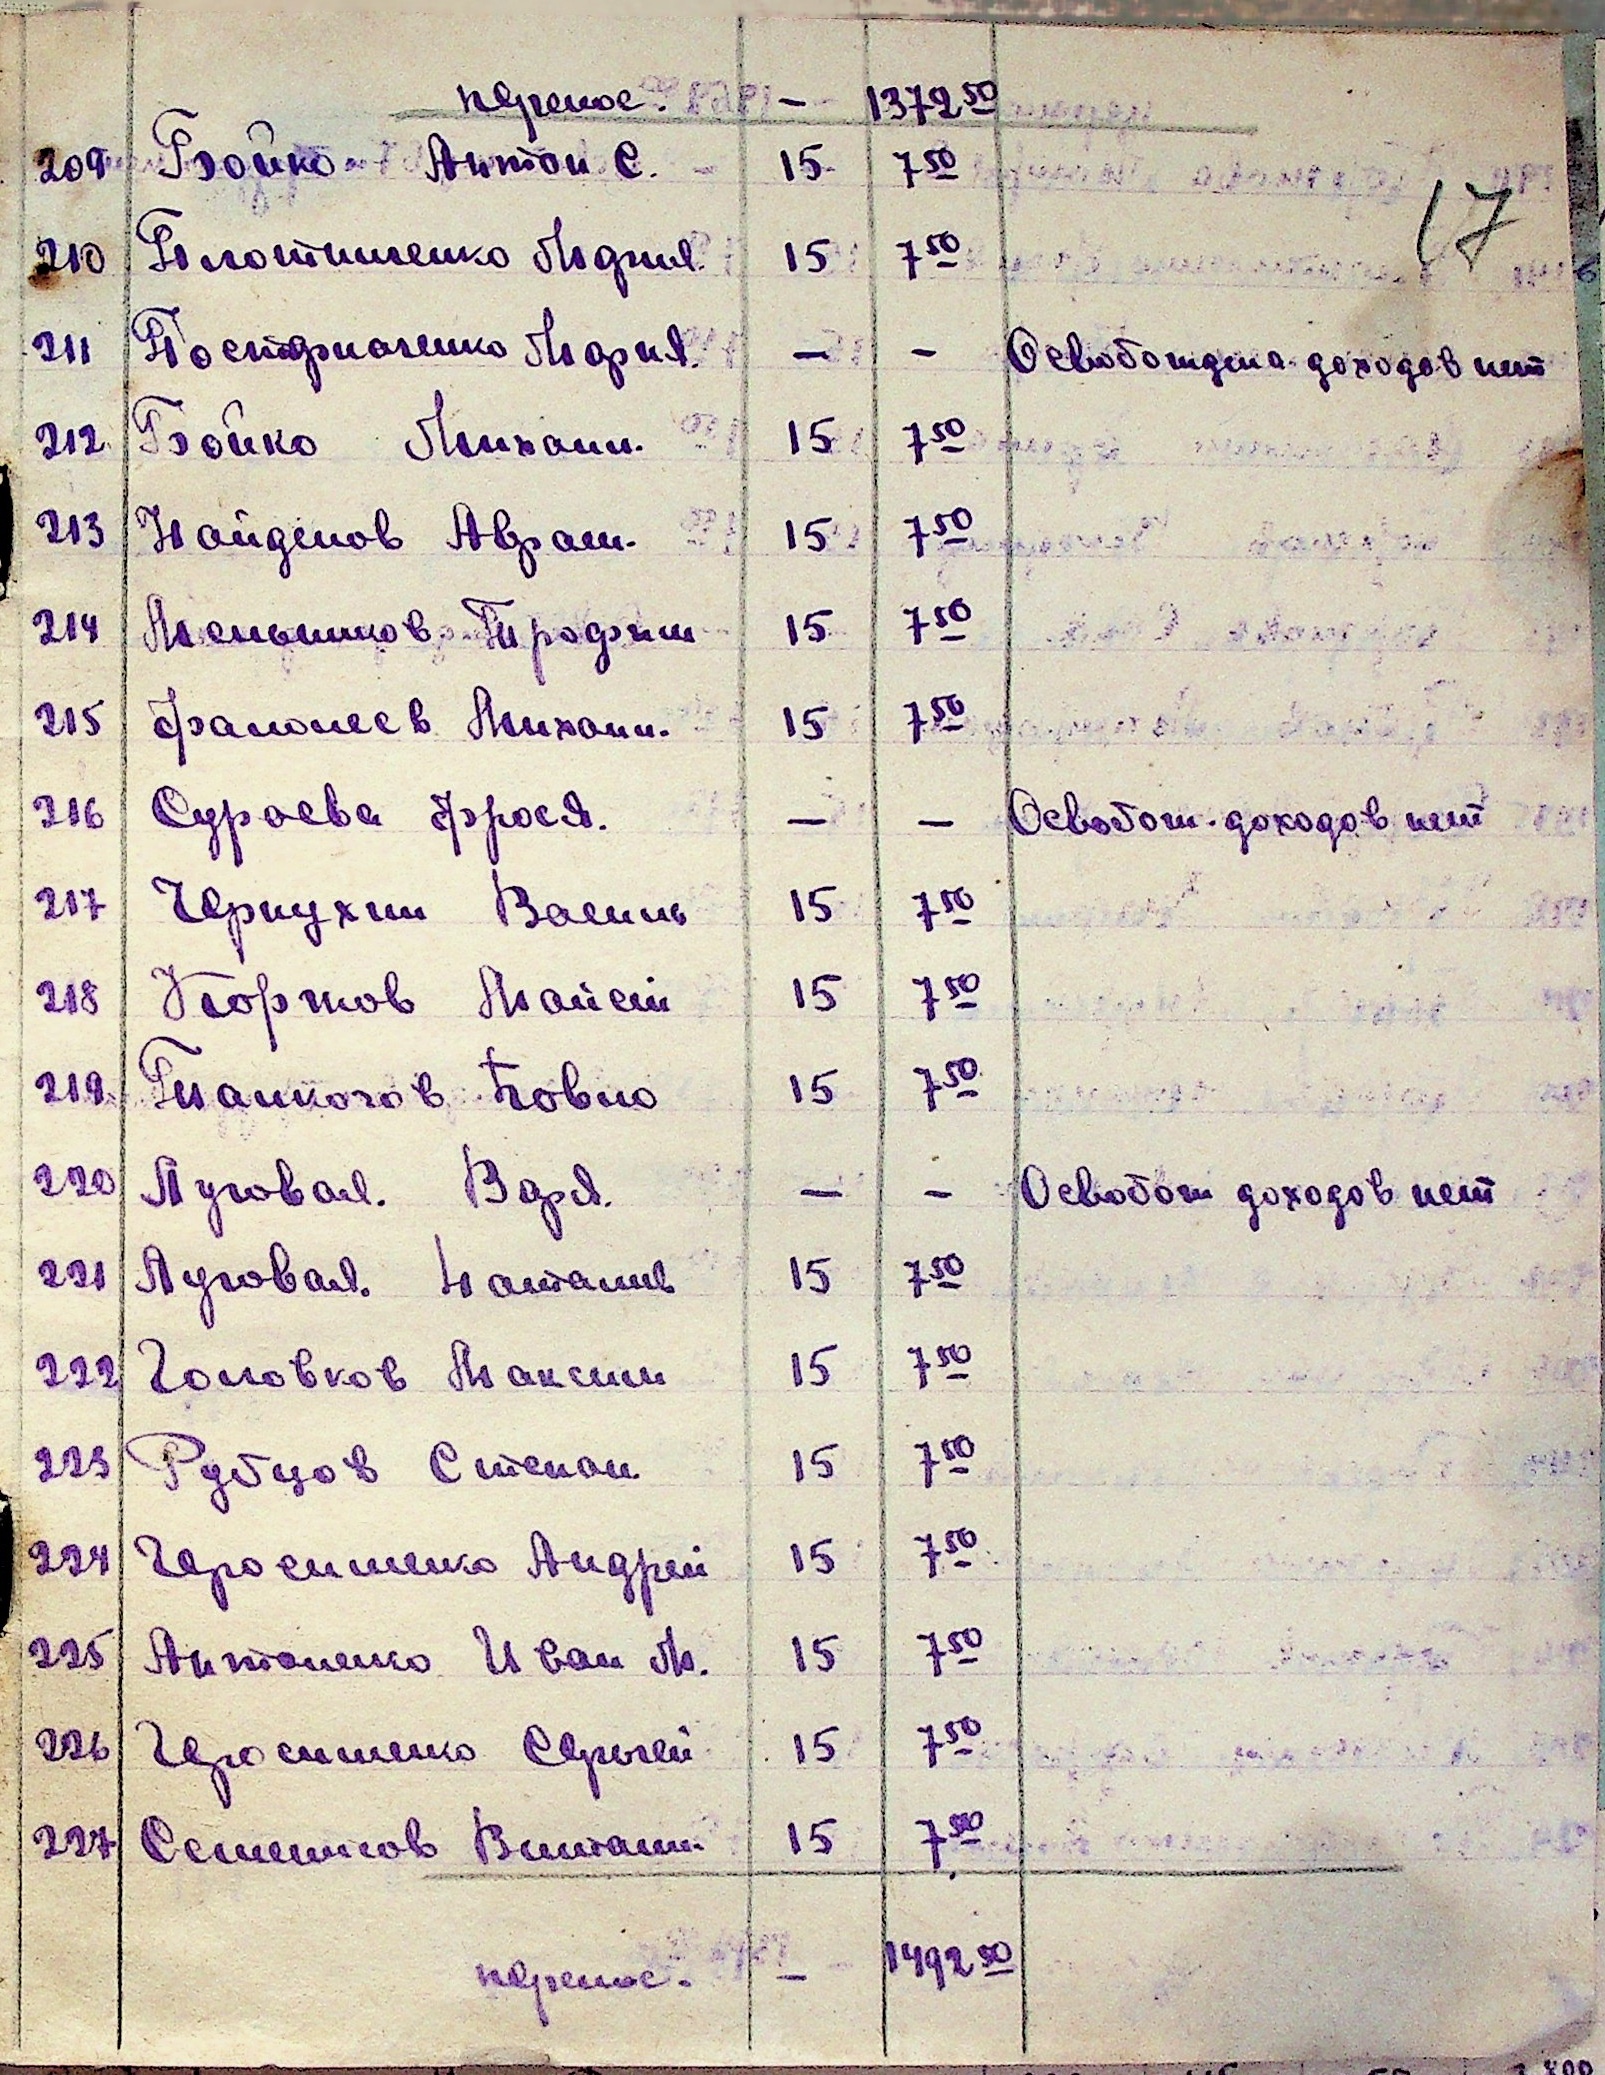 перенос. — 1372 50
209 Бойко Антон С. 15 7 50
17
210 Плотниченко Мария. 15 7 50
211 Мария. — — Освобождена доходов нет
212 Бойко Михаил. 15 7 50
213 Найденов Аврам. 15 7 50
214 Меньшиков Трофим 15 7 50
215 Фаломеев Михаил. 15 7 50
216 Сураева Фрося. — — Освобож. доходов нет
217 Чернухин Василь 15 7 50
218 Коржов Мойсей 15 7 50
219 Панкозов 15 7 50
220 Луговая. Варя. — — Освобож доходов нет
221 Луговая. Наталия 15 7 50
222 Головков Максим 15 7 50
223 Рубцов Степан. 15 7 50
224 Герасименко Андрей 15 7 50
225 Антоненко Иван М. 15 7 50
226 Герасименко Сергей 15 7 50
227 Семенков 15 7 50
перенос. — 1492 50